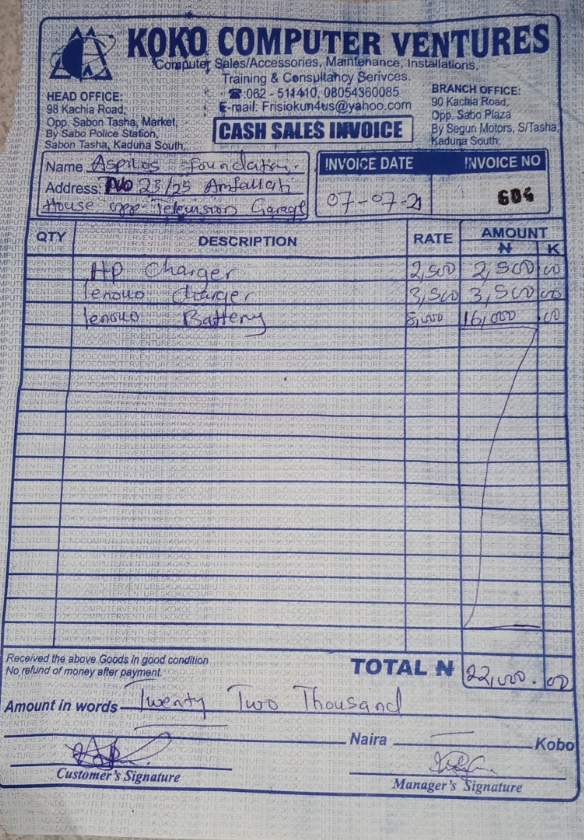 KOKO COMPUTER VENTURES
Computer Sales/Accessories, Maintenance, Installations,
Training & Consultancy Serivces.
☎:062 - 514410, 08054360085
E-mail: Frisiokun4us@yahoo.com
HEAD OFFICE:
98 Kachia Road,
Opp. Sabon Tasha, Market,
By Sabo Police Station,
Sabon Tasha, Kaduna South.
BRANCH OFFICE:
90 Kachia Road,
Opp. Sabo Plaza
By Segun Motors, S/Tasha,
Kaduna South.
CASH SALES INVOICE
Name Aspilos Foundation.
Address: No 23/25
House opp Television Garage
INVOICE DATE INVOICE NO
07-07-21 604
QTY DESCRIPTION RATE AMOUNT
₦ K
HP Charger 2,500 2,500 00
lenovo charger 3,500 3,500 00
lenovo Battery 8,000 16,000 00
Received the above Goods in good condition
No refund of money after payment.
TOTAL ₦ 22,000.00
Amount in words Twenty Two Thousand
Naira Kobo
Customer's Signature
Manager's Signature